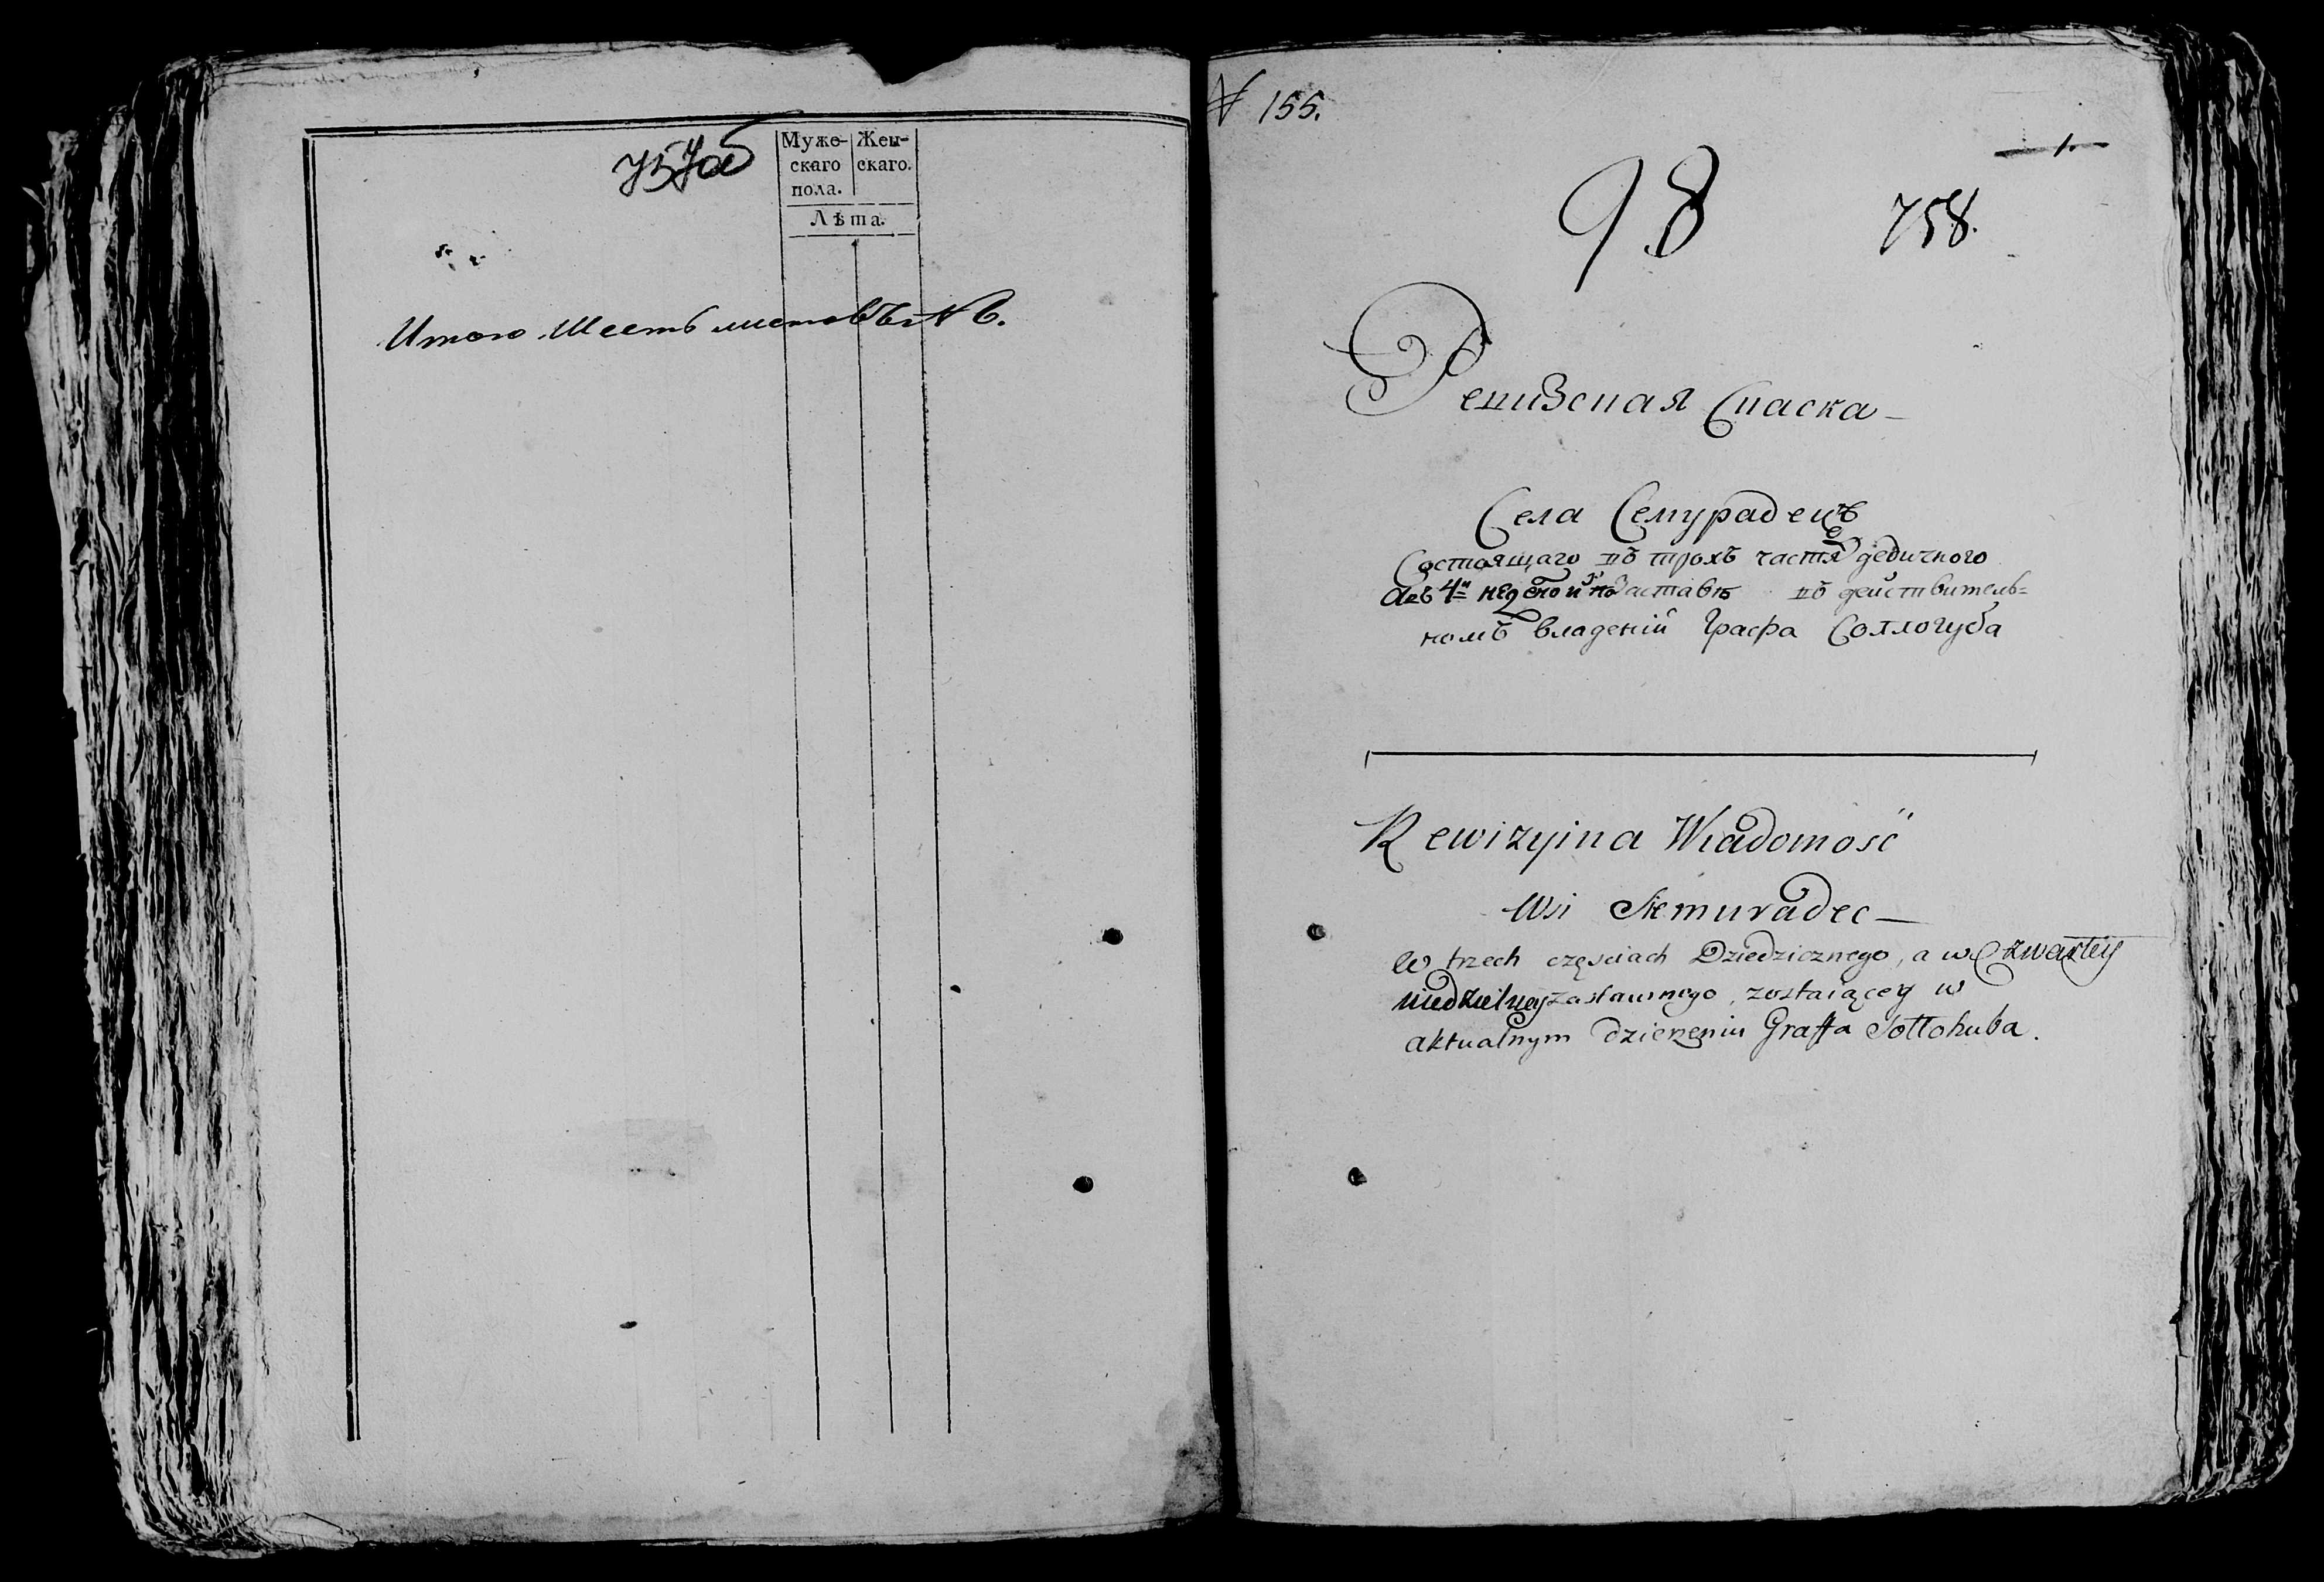 757об
Муже- Жен-
скаго скаго.
пола.
Лѣта.
Итого Шесть листовъ № 6.
№ 155.
1.
98 758.
Ревизская Сказка
Села Семурадецъ
Состоящаго въ трохъ частяхъ дедичного
а въ 4й въ действитель=
номъ владеніи Графа Соллогуба
Rewizyina Wiadomość
Wsi Siemuradec
W trzech częściach Dziedzicznego, a w Czwartey
niedzielney zastawnego, zostaiącey w
aktualnym dzierzeniu Graffa Sołłohuba.